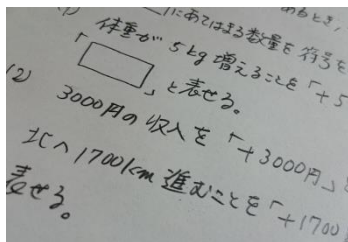 (1) □にあてはまる数量を符号を
体重が5kg増えることを「+5
「□」と表せる。
(2) 3000円の収入を「+3000円」と
北へ1700km進むことを「+1700
表せる。